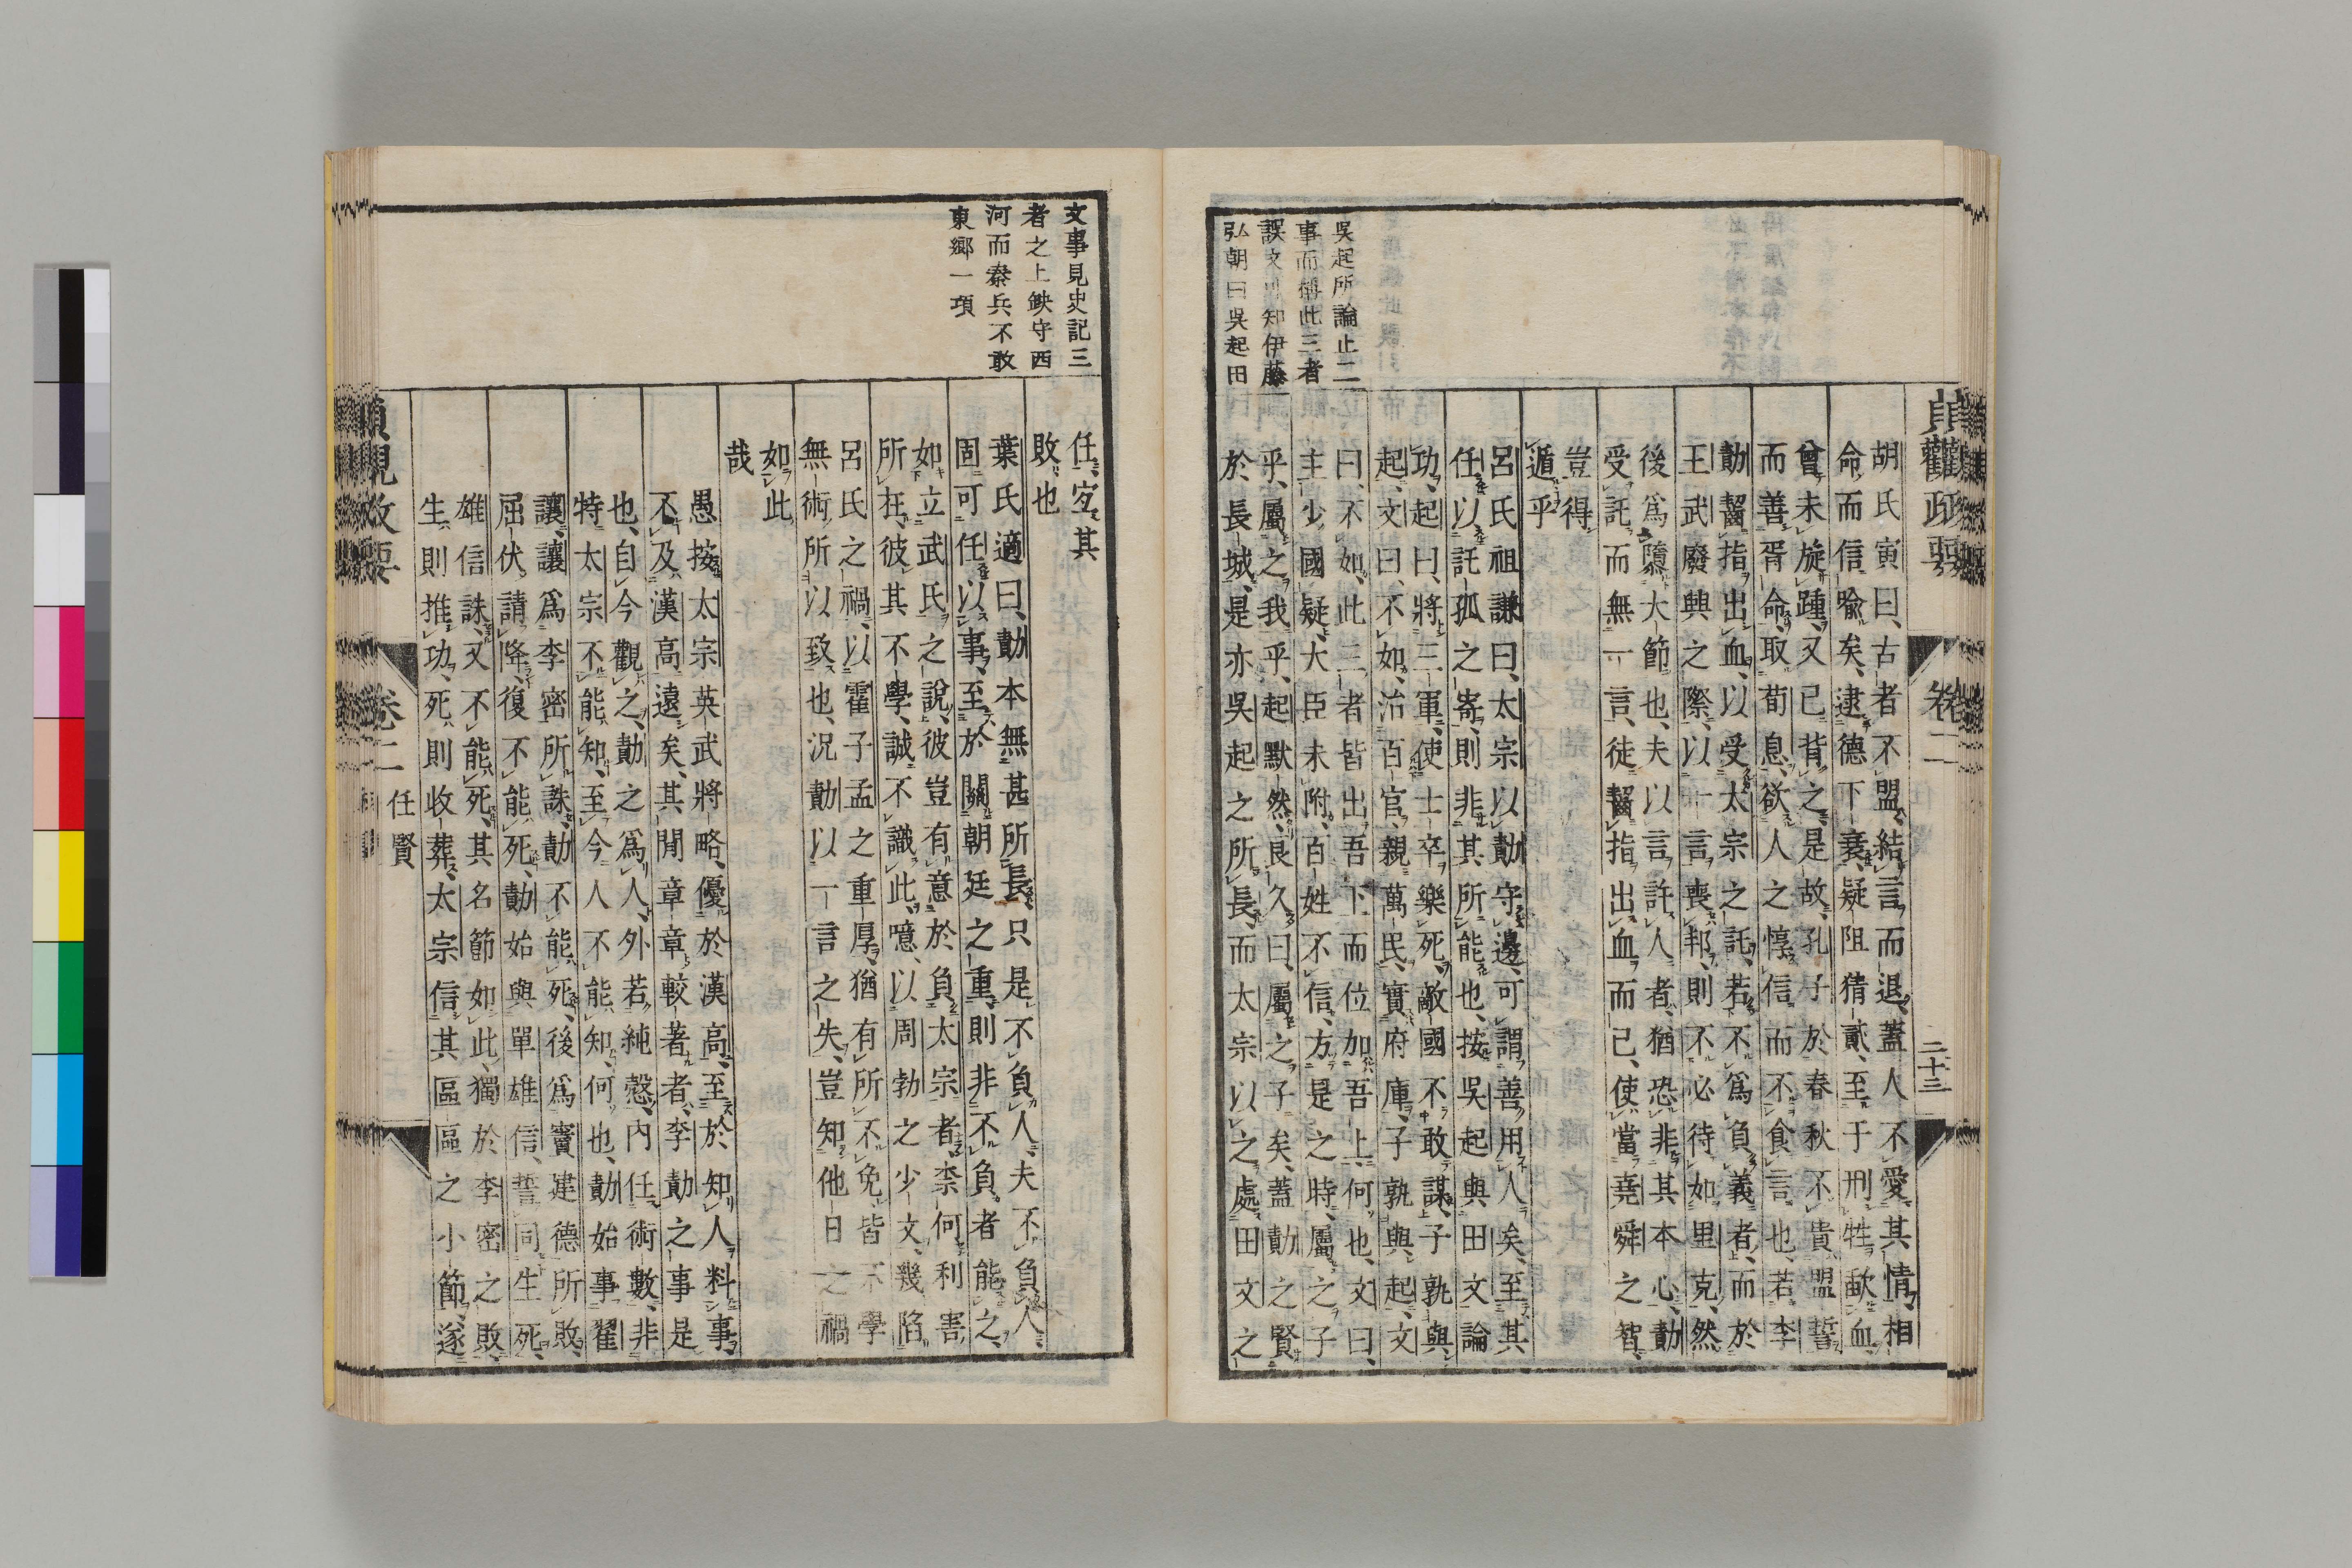 貞觀政要
卷二
二十三
吳起所論止二
事而稱此三者
誤文以知伊藤
弘朝曰吳起田
胡氏寅曰古者不盟結言而退蓋人不愛其情相
命而信喻矣逮德下衰疑阻猜貳至于刑牲歃血
曾未旋踵又已背之是故孔子於春秋不貴盟誓
而善胥命取荀息欲人之惇信而不食言也若李
勣齧指出血以受太宗之託若不爲負義者而於
王武廢興之際以一言喪邦則不必待如里克然
後爲隳大節也夫以言許人者猶恐非其本心勣
受託而無一言徒齧指出血而已使當堯舜之智
豈得
遁乎
呂氏祖謙曰太宗以勣守邊可謂善用人矣至其
任以託孤之寄則非其所能也按吳起與田文論
功起曰將三軍使士卒樂死敵國不敢謀子孰與
起文曰不如治百官親萬民實府庫子孰與起文
曰不如此三者皆出吾下而位加吾上何也文曰
主少國疑大臣未附百姓不信方是之時屬之子
乎屬之我乎起默然良久曰屬之子矣蓋勣之賢
於長城是亦吳起之所長而太宗以之處田文之
文事見史記三
者之上缺守西
河而秦兵不敢
東鄉一項
任宜其
敗也
葉氏適曰勣本無甚所長只是不負人夫不負人
固可任以事至於關朝廷之重則非不負者能之
如立武氏之說彼豈有意於負太宗者柰何利害
所在彼其不學誠不識此噫以周勃之少文幾陷
呂氏之禍以霍子孟之重厚猶有所不免皆不學
無術所以致也況勣以一言之失豈知他日之禍
如此
哉
愚按太宗英武將略優於漢高至於知人料事
不及漢高遠矣其間章章較著者李勣之事是
也自今觀之勣之爲人外若純慤內任術數非
特太宗不能知至今人不能知何也勣始事翟
讓讓爲李密所誅勣不能死後爲竇建德所敗
屈伏請降復不能死勣始與單雄信誓同生死
雄信誅又不能死其名節如此獨於李密之敗
生則推功死則收葬太宗信其區區之小節遂
貞觀政要
卷二
任賢